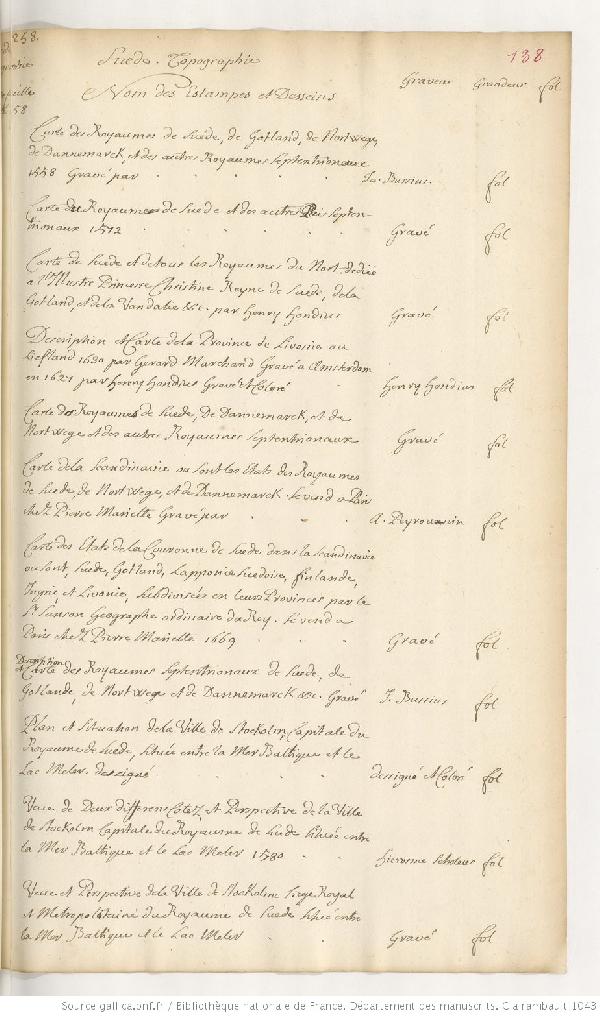 258.
58
138
Suede. Topographie
Nom des Estampes et Desseins
Graveur Grandeur fol
Carte des Royaumes de Suéde, de Gotland, de Nortwege,
de Dannemarck, et des autres Royaumes Septentrionaux
1558 Gravé par . . . . Ja. Bussius. fol
Carte des Royaumes de Suede et des autres Septen-
trionaux 1572 . . . Gravé fol
Carte de Suéde et de tous les Royaumes du Nort dediée
a l'Illustre Princesse Christine Reyne de Suéde, de la
Gotland, et de la Vandalie &c. par Henry Hondius Gravé fol
Description et Carte de la Province de Livonie ou
Liefland 1620 par Gerard Marchand Gravé a Amsterdam
en 1627 par Henry Hondius Gravé et Coloré . Henry Hondius fol
Carte des Royaumes de Suéde, De Dannemarck, et de
Nortwege et des autres Royaumes Septentrionaux Gravé fol
Carte de la Scandinavie ou sont les Etats des Royaumes
de Suéde, de Nortwege, et de Dannemarck se vend a Paris
chez Pierre Mariette Gravé par . . A. Peyrounin fol
Carte des Etats de la Couronne de Suéde dans la Scandinavie
ou sont, Suéde, Gotland, Lapponie Suédoise, Finlande,
Ingrie, et Livonie, subdivisées en leurs Provinces par le
Sr. Sanson Geographe ordinaire du Roy. se vend a
Paris chez Pierre Mariette 1669 . . Gravé fol
Description
et Carte des Royaumes Septentrionaux de Suéde, de
Gotlande, de Nortwege et de Dannemarck &c. Gravé J. Bussius fol
Plan et Situation de la Ville de Stockolm, Capitale du
Royaume de Suéde, située entre la Mer Balthique et le
Lac Meler dessigné . . . . dessigné et Coloré fol
Veüe de Deux differens Cotez et Perspective de la Ville
de Stockolm Capitale du Royaume de Suéde située entre
la Mer Balthique et le Lac Meler 1580 . . Hieronme Scholeus fol
Veüe et Perspective de la Ville de Stockolm Siege Royal
et Metropolitaine du Royaume de Suede située entre
la Mer Balthique et le Lac Meler . . Gravé fol
Source gallica.bnf.fr / Bibliothèque nationale de France. Département des manuscrits. Clairambault 1043